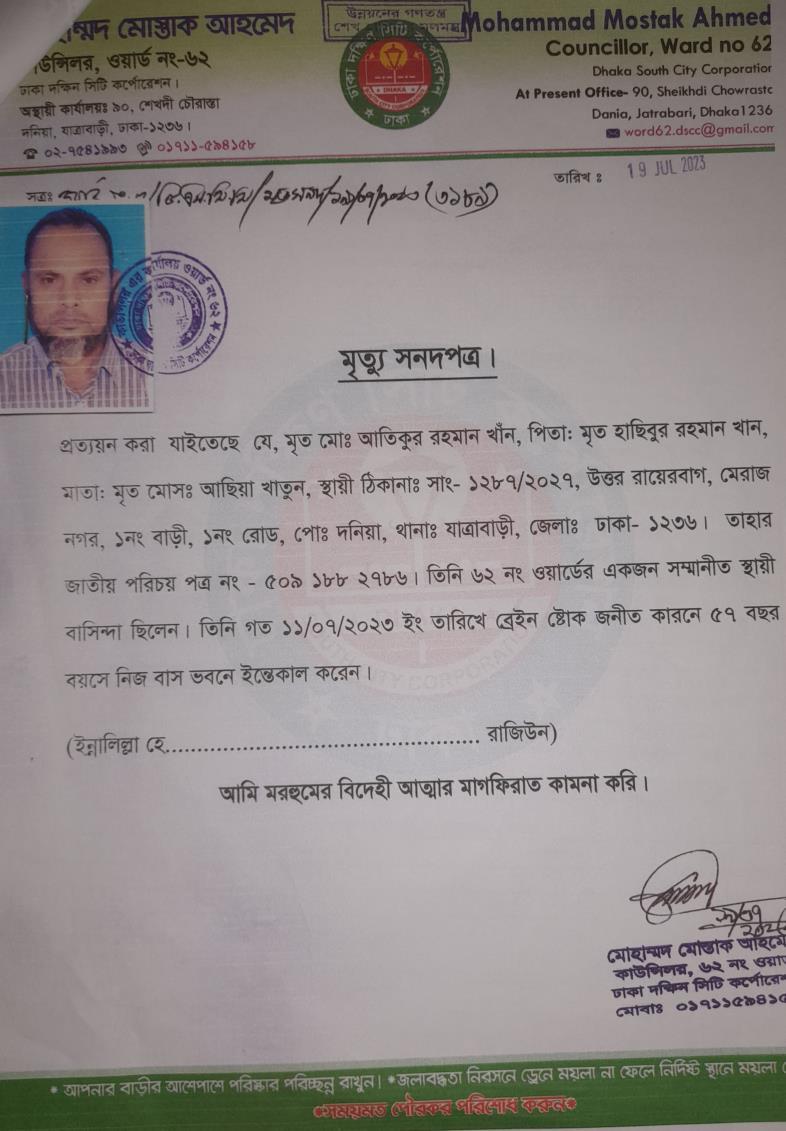 ম্মদ মোস্তাক আহমেদ
উন্সিলর, ওয়ার্ড নং-৬২
ঢাকা দক্ষিন সিটি কর্পোরেশন।
অস্থায়ী কার্যালয়ঃ ৯০, শেখদী চৌরাস্তা
দনিয়া, যাত্রাবাড়ী, ঢাকা-১২৩৬।
☎ ০২-৭৫৪১৯৯৩ ০১৭১১-৫৯৪১৫৮
উন্নয়নের গণতন্ত্র
শেখ
ঢাকা দক্ষিণ সিটি কর্পোরেশন
DHAKA
SOUTH CITY CORPORATION
ঢাকা
Mohammad Mostak Ahmed
Councillor, Ward no 62
Dhaka South City Corporatior
At Present Office- 90, Sheikhdi Chowrastc
Dania, Jatrabari, Dhaka1236
word62.dscc@gmail.com
তারিখ ঃ 19 JUL 2023
কাউন্সিলর এর কার্যালয় ওয়ার্ড নং ৬২
মৃত্যু সনদপত্র।
প্রত্যয়ন করা যাইতেছে যে, মৃত মোঃ আতিকুর রহমান খাঁন, পিতাঃ মৃত হাছিবুর রহমান খান,
মাতাঃ মৃত মোসঃ আছিয়া খাতুন, স্থায়ী ঠিকানাঃ সাং- ১২৪৭/২০২৭, উত্তর রায়েরবাগ, মেরাজ
নগর, ১নং বাড়ী, ১নং রোড, পোঃ দনিয়া, থানাঃ যাত্রাবাড়ী, জেলাঃ ঢাকা- ১২৩৬। তাহার
জাতীয় পরিচয় পত্র নং - ৫০৯ ১৮৮ ২৭৮৬। তিনি ৬২ নং ওয়ার্ডের একজন সম্মানীত স্থায়ী
বাসিন্দা ছিলেন। তিনি গত ১১/০৭/২০২৩ ইং তারিখে ব্রেইন ষ্টোক জনীত কারনে ৫৭ বছর
বয়সে নিজ বাস ভবনে ইন্তেকাল করেন।
(ইন্নালিল্লা হে................................................ রাজিউন)
আমি মরহুমের বিদেহী আত্মার মাগফিরাত কামনা করি।
মোহাম্মদ মোস্তাক আহমে
কাউন্সিলর, ৬২ নং ওয়া
ঢাকা দক্ষিন সিটি কর্পোরেশ
মোবাঃ ০১৭১১৫৯৪১৫
* আপনার বাড়ীর আশেপাশে পরিষ্কার পরিচ্ছন্ন রাখুন। *জলাবদ্ধতা নিরসনে ড্রেনে ময়লা না ফেলে নির্দিষ্ট স্থানে ময়লা
*সময়মত পৌরকর পরিশোধ করুন*